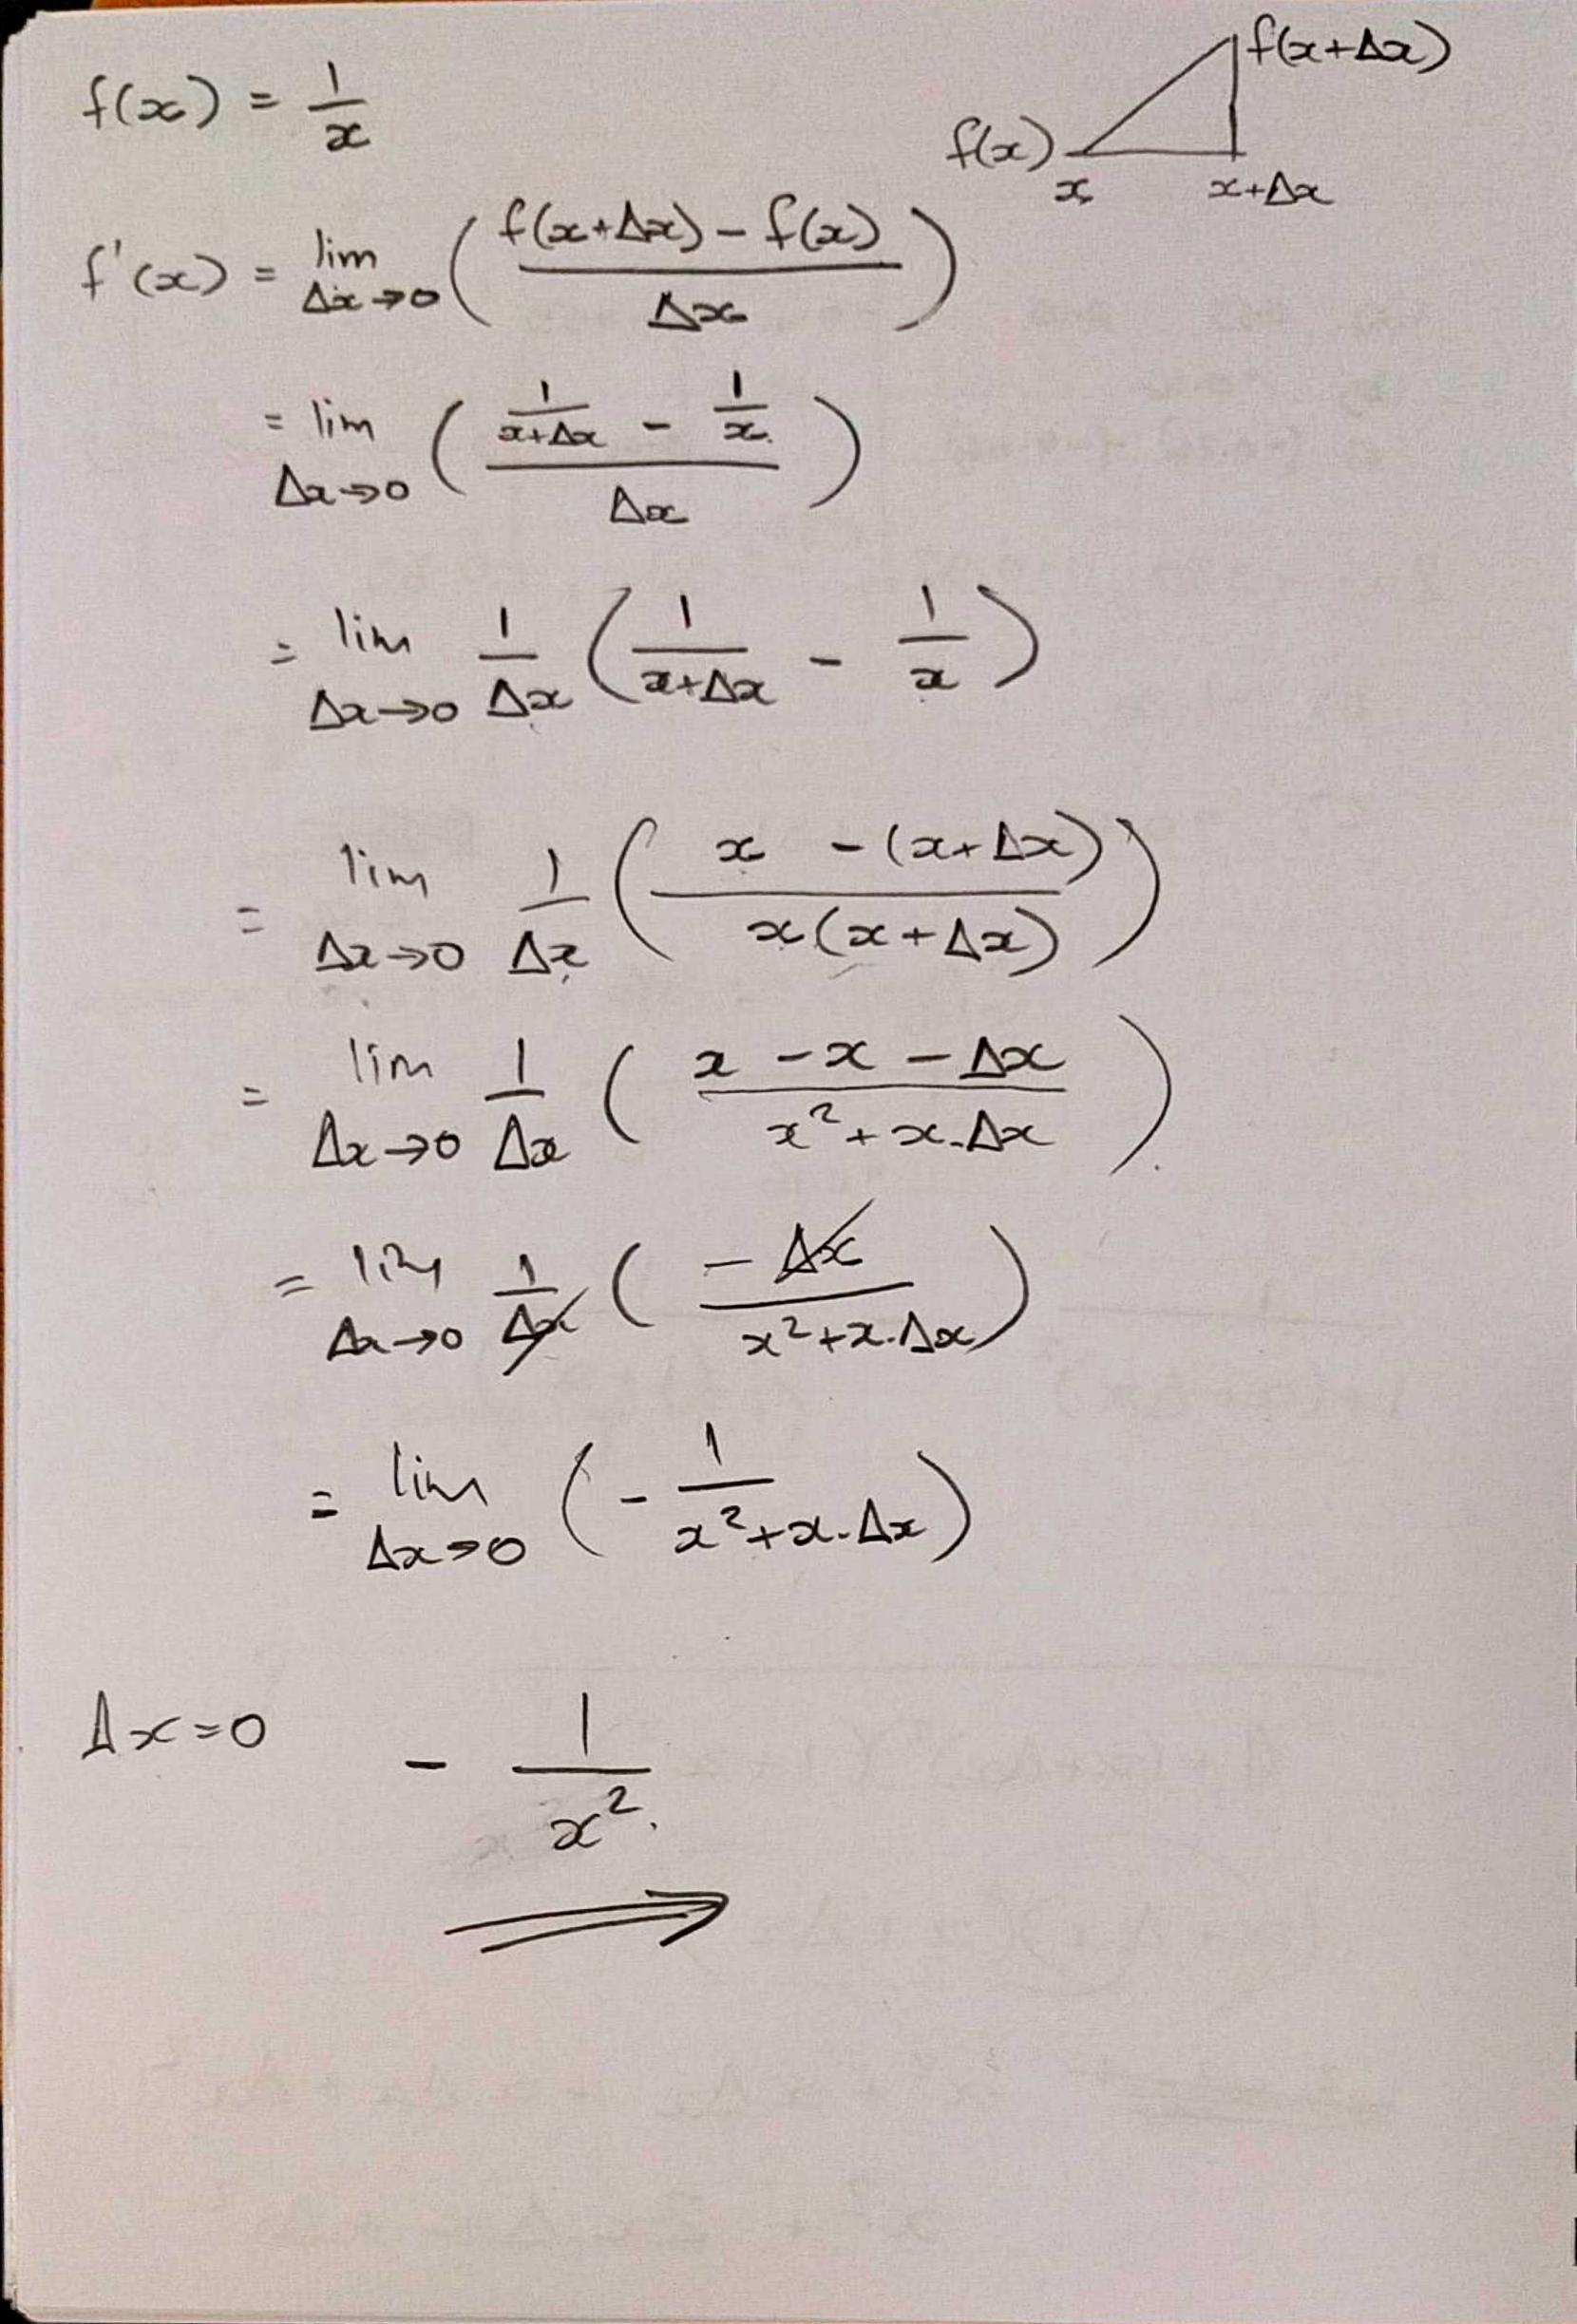 f(x) = 1/x
f(x+Δx)
f(x)
x x+Δx
f'(x) = lim Δx→0 ( (f(x+Δx) - f(x)) / Δx )
= lim Δx→0 ( (1/(x+Δx) - 1/x) / Δx )
= lim Δx→0 1/Δx ( 1/(x+Δx) - 1/x )
= lim Δx→0 1/Δx ( (x - (x+Δx)) / (x(x+Δx)) )
= lim Δx→0 1/Δx ( (x - x - Δx) / (x² + x.Δx) )
= lim Δx→0 1/Δx ( -Δx / (x² + x.Δx) )
= lim Δx→0 ( - 1/(x² + x.Δx) )
Δx=0 - 1/x².